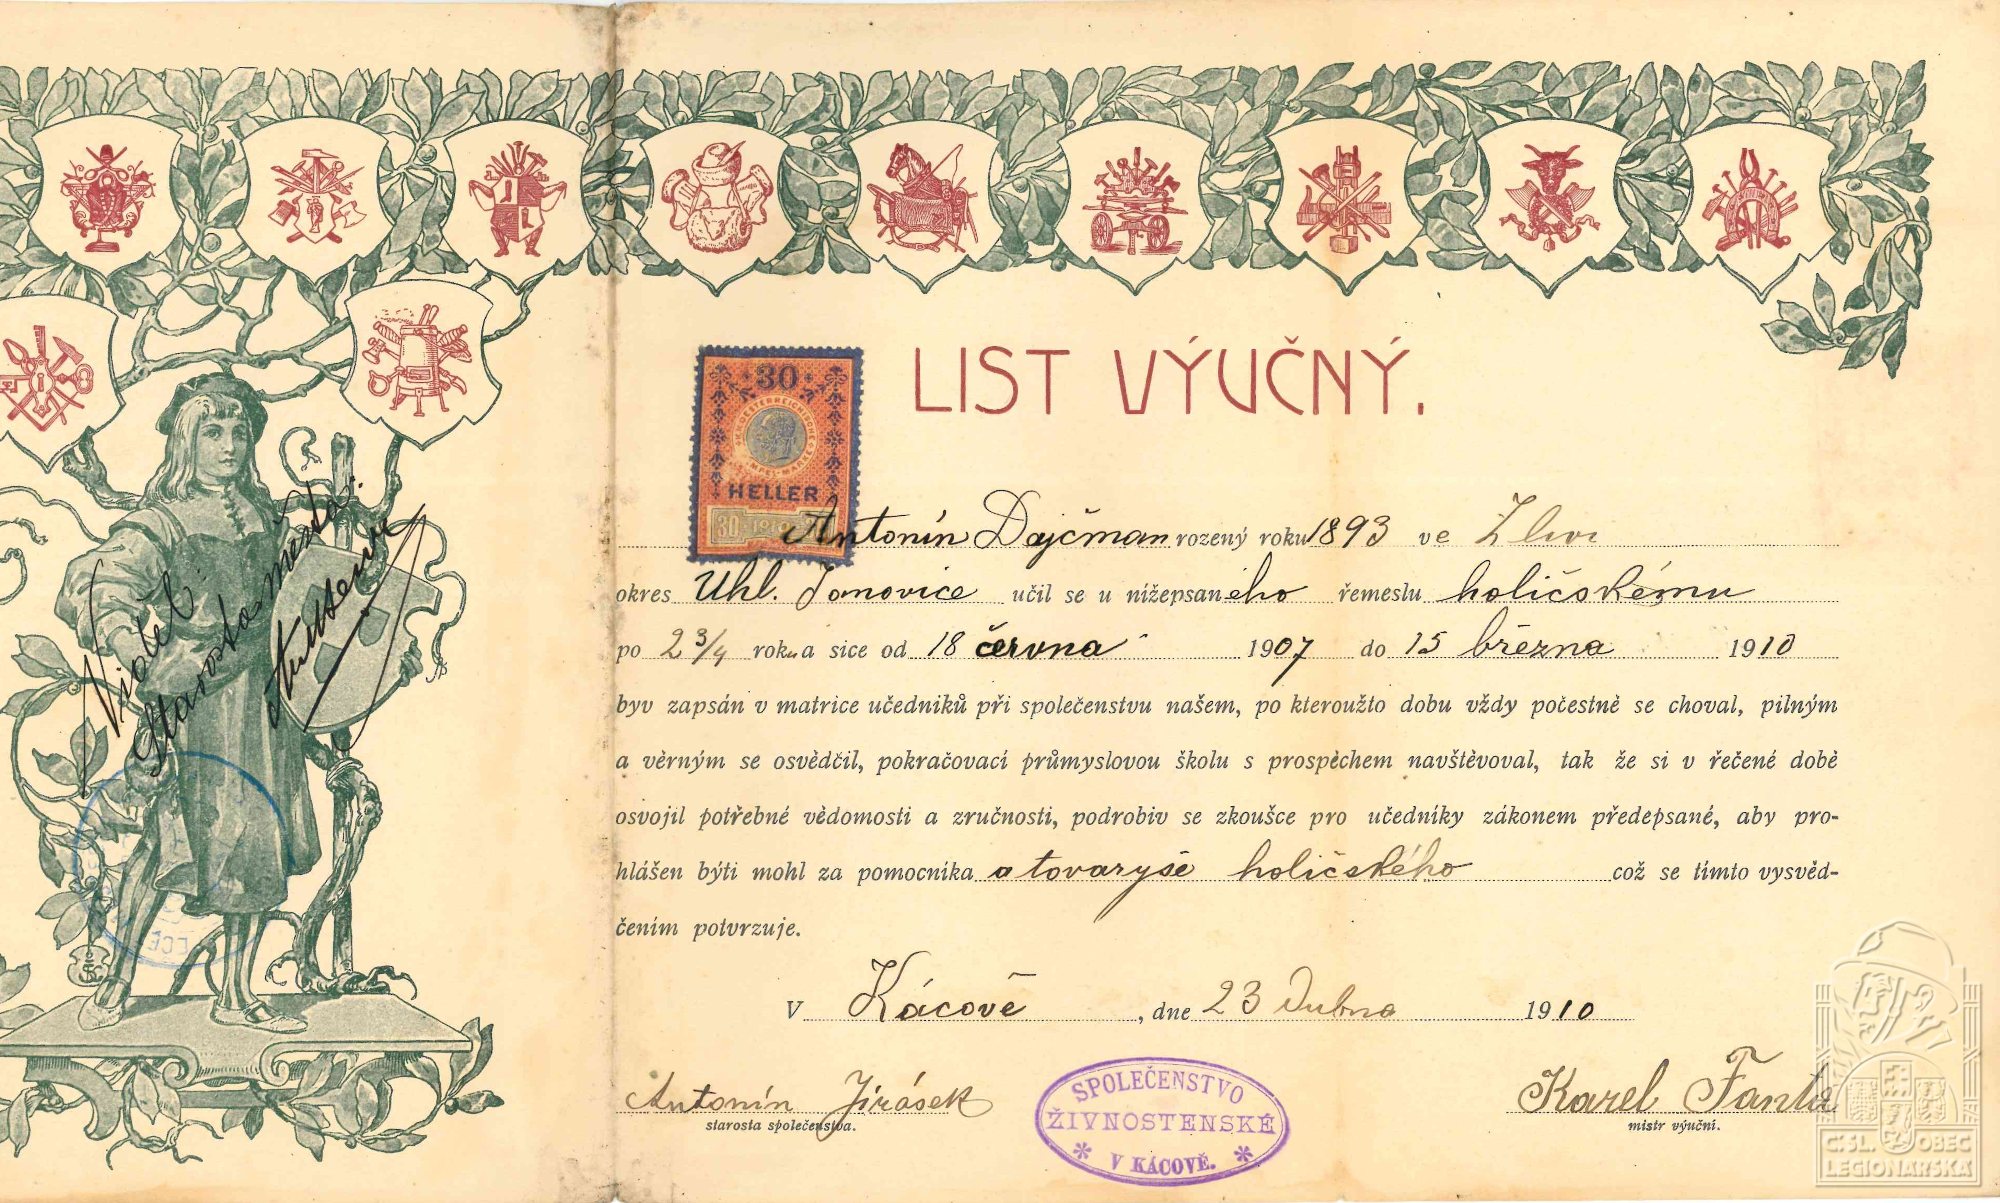 LIST VÝUČNÝ.
30
K.K. OESTERREICHISCHE STEMPEL-MARKE
HELLER
30 · 1910
Antonín Dajčman rozený roku 1893 ve Zlivi
okres Uhl. Janovice učil se u nížepsaného řemeslu holičskému
po 2 3/4 roku a sice od 18 června 1907 do 15 března 1910
byv zapsán v matrice učedníků při společenstvu našem, po kteroužto dobu vždy počestně se choval, pilným
a věrným se osvědčil, pokračovací průmyslovou školu s prospěchem navštěvoval, tak že si v řečené době
osvojil potřebné vědomosti a zručnosti, podrobiv se zkoušce pro učedníky zákonem předepsané, aby pro-
hlášen býti mohl za pomocníka a tovaryše holičského což se tímto vysvěd-
čením potvrzuje.
V Kácově, dne 23 Dubna 1910
Antonín Jirásek
starosta společenstva.
SPOLEČENSTVO
ŽIVNOSTENSKÉ
* V KÁCOVĚ. *
Karel Fanta
mistr výuční.
Viděl:
Starosta města:
Č.SL. OBEC
LEGIONÁŘSKÁ